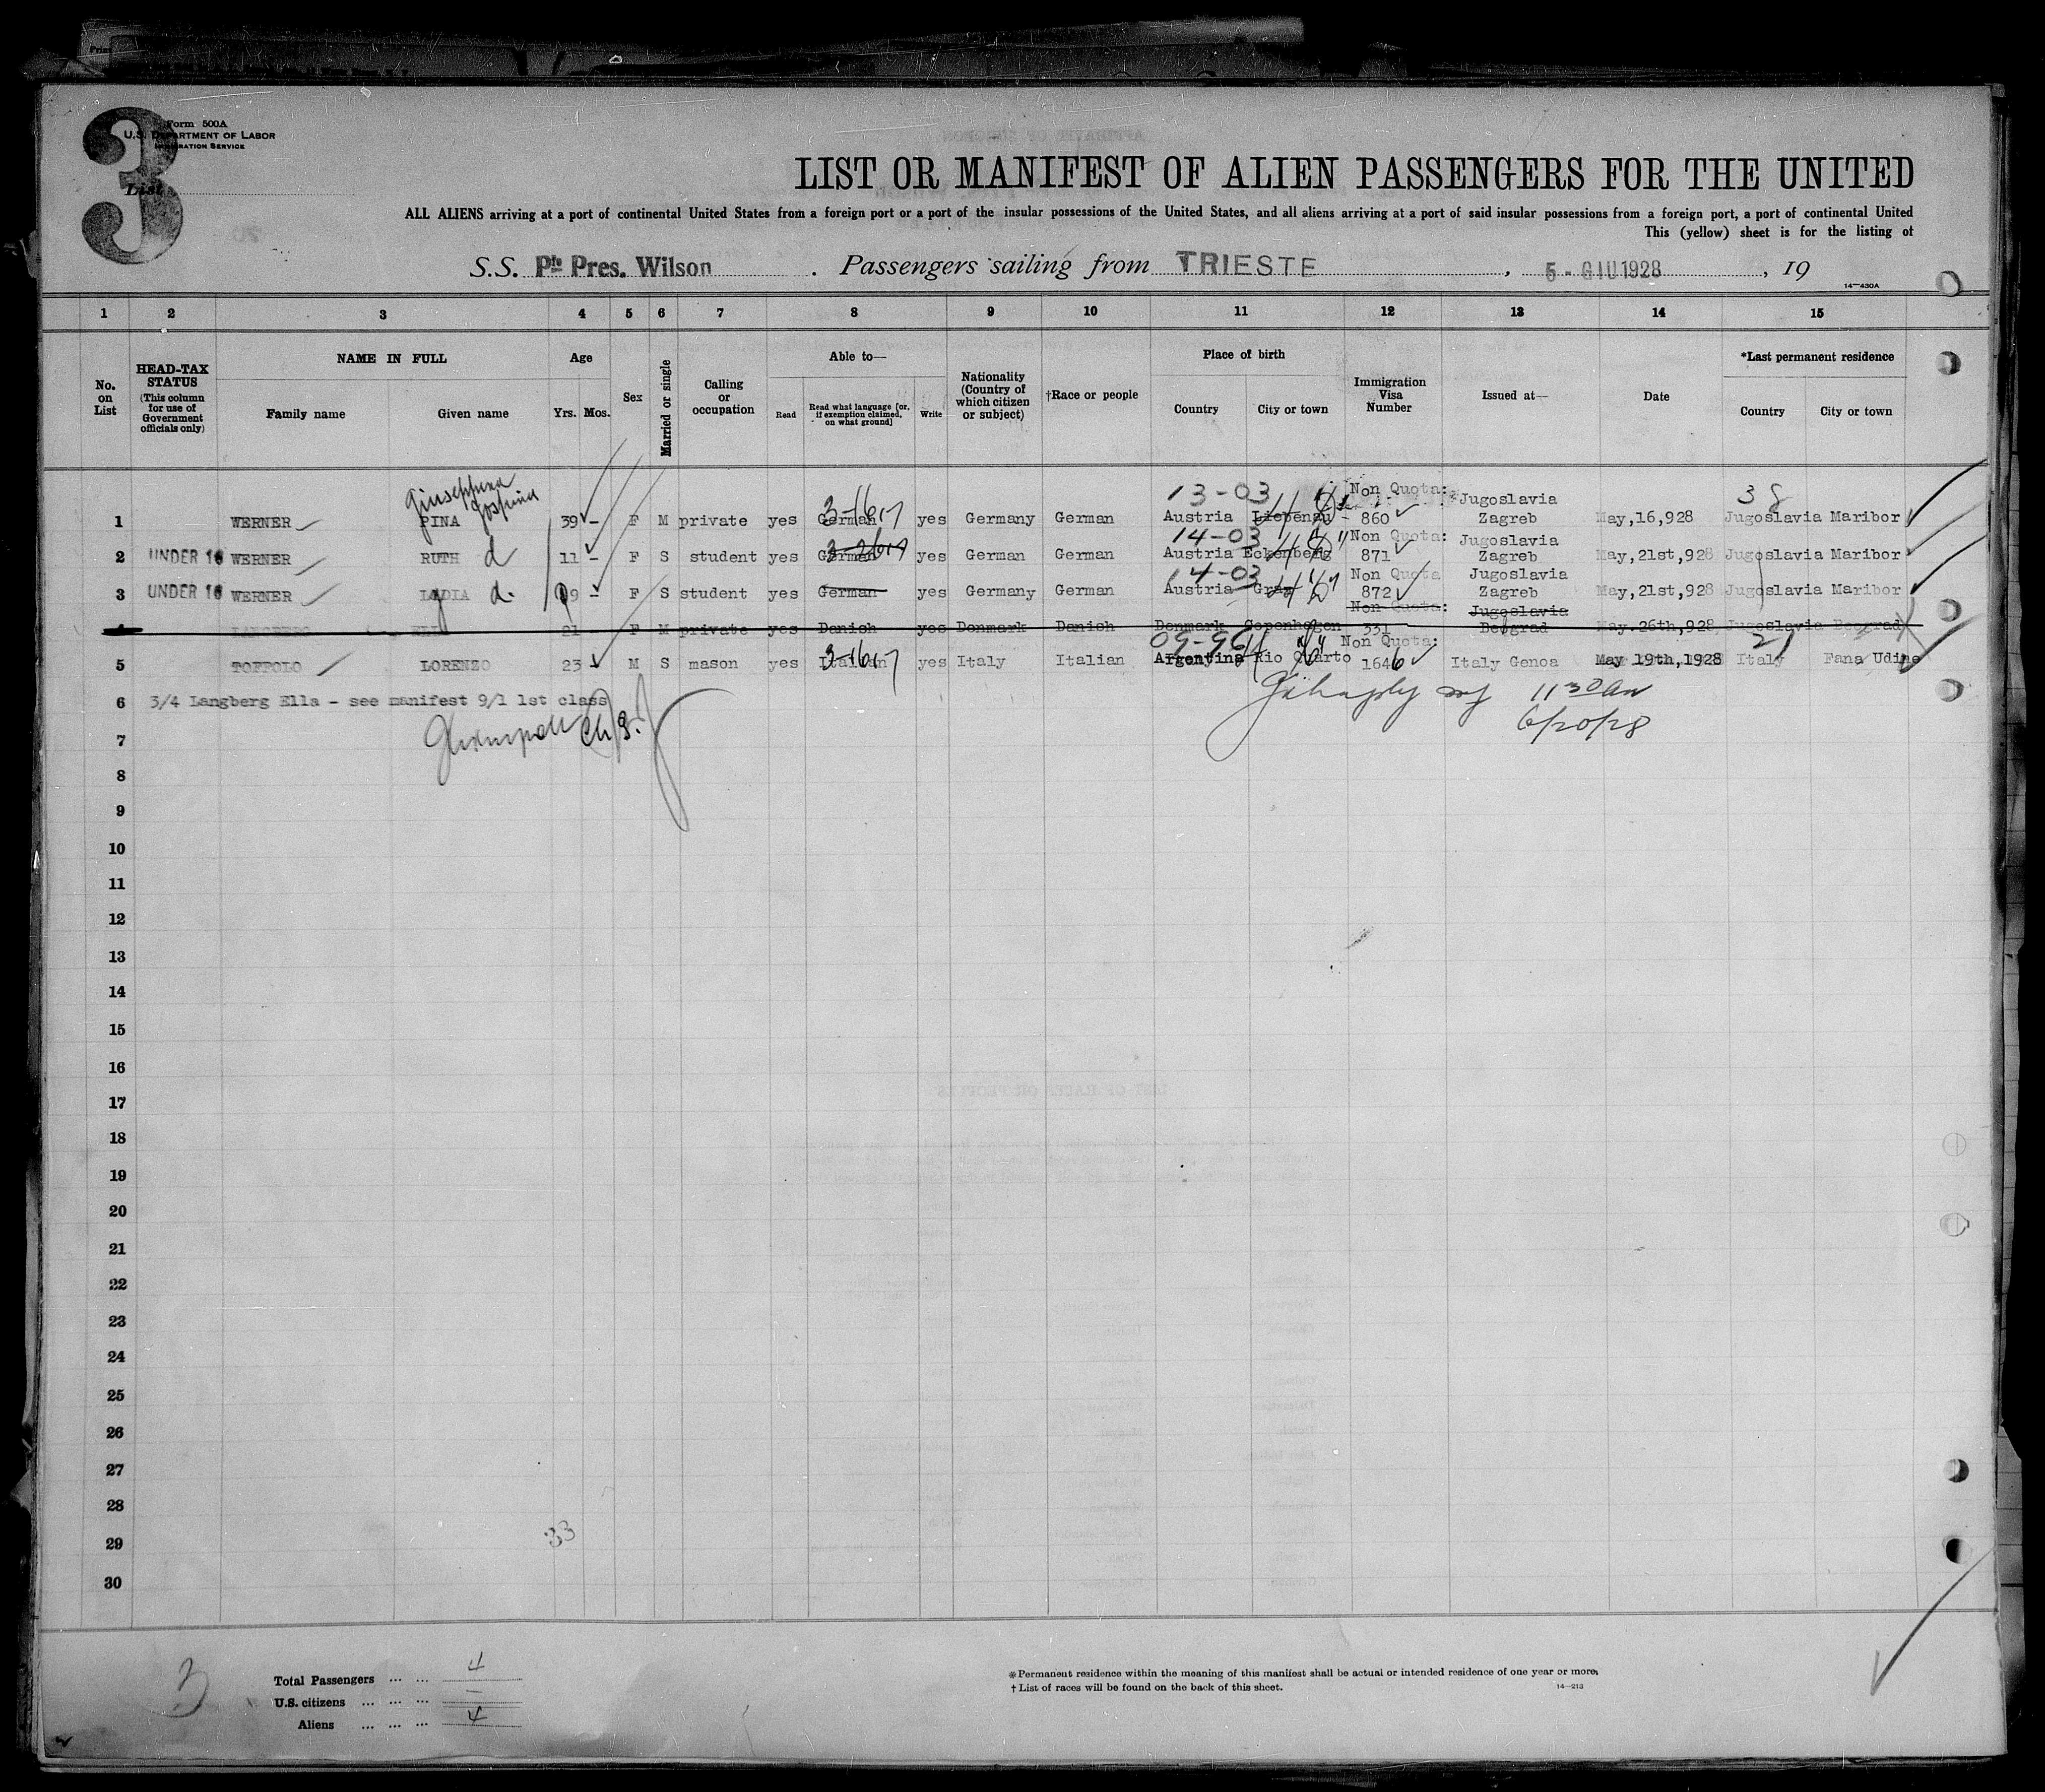 3
Form 500A
U.S. DEPARTMENT OF LABOR
IMMIGRATION SERVICE
List
LIST OR MANIFEST OF ALIEN PASSENGERS FOR THE UNITED
ALL ALIENS arriving at a port of continental United States from a foreign port or a port of the insular possessions of the United States, and all aliens arriving at a port of said insular possessions from a foreign port, a port of continental United
This (yellow) sheet is for the listing of
S.S. Pte Pres. Wilson . Passengers sailing from TRIESTE , 5 - GIU 1928 , 19
14—430A
1 2 3 4 5 6 7 8 9 10 11 12 13 14 15
No. on List
HEAD-TAX STATUS (This column for use of Government officials only)
NAME IN FULL
Family name Given name
Age
Yrs. Mos.
Sex
Married or single
Calling or occupation
Able to—
Read Read what language [or, if exemption claimed, on what ground] Write
Nationality (Country of which citizen or subject)
†Race or people
Place of birth
Country City or town
Immigration Visa Number
Issued at—
Date
*Last permanent residence
Country City or town
Giuseppina 13-03 Non Quota: Jugoslavia 38
1 WERNER PINA 39 - F M private yes German yes Germany German Austria Liebenau 860 Zagreb May,16,928 Jugoslavia Maribor
14-03 Non Quota: Jugoslavia
2 UNDER 16 WERNER RUTH d 11 - F S student yes German yes German German Austria Eckenberg 871 Zagreb May,21st,928 Jugoslavia Maribor
14-03 Non Quota Jugoslavia
3 UNDER 16 WERNER LYDIA d. 9 - F S student yes German yes Germany German Austria Graz 872 Zagreb May,21st,928 Jugoslavia Maribor
Non Quota: Jugoslavia
4 21 F M private yes Danish yes Denmark Danish Denmark Copenhagen 331 Beograd May.26th,928 Jugoslavia Beograd
Non Quota: 27
5 TOFFOLO LORENZO 23 M S mason yes Italian yes Italy Italian Argentina Rio Quarto 1646 Italy Genoa May 19th,1928 Italy Fana Udine
6 3/4 Langberg Ella - see manifest 9/1 1st class 11 30 am
7 6/20/28
8
9
10
11
12
13
14
15
16
17
18
19
20
21
22
23
24
25
26
27
28
29
33
30
3
Total Passengers ... ... 4
U.S. citizens ... ... ... —
Aliens ... ... ... 4
*Permanent residence within the meaning of this manifest shall be actual or intended residence of one year or more.
†List of races will be found on the back of this sheet.
14—213